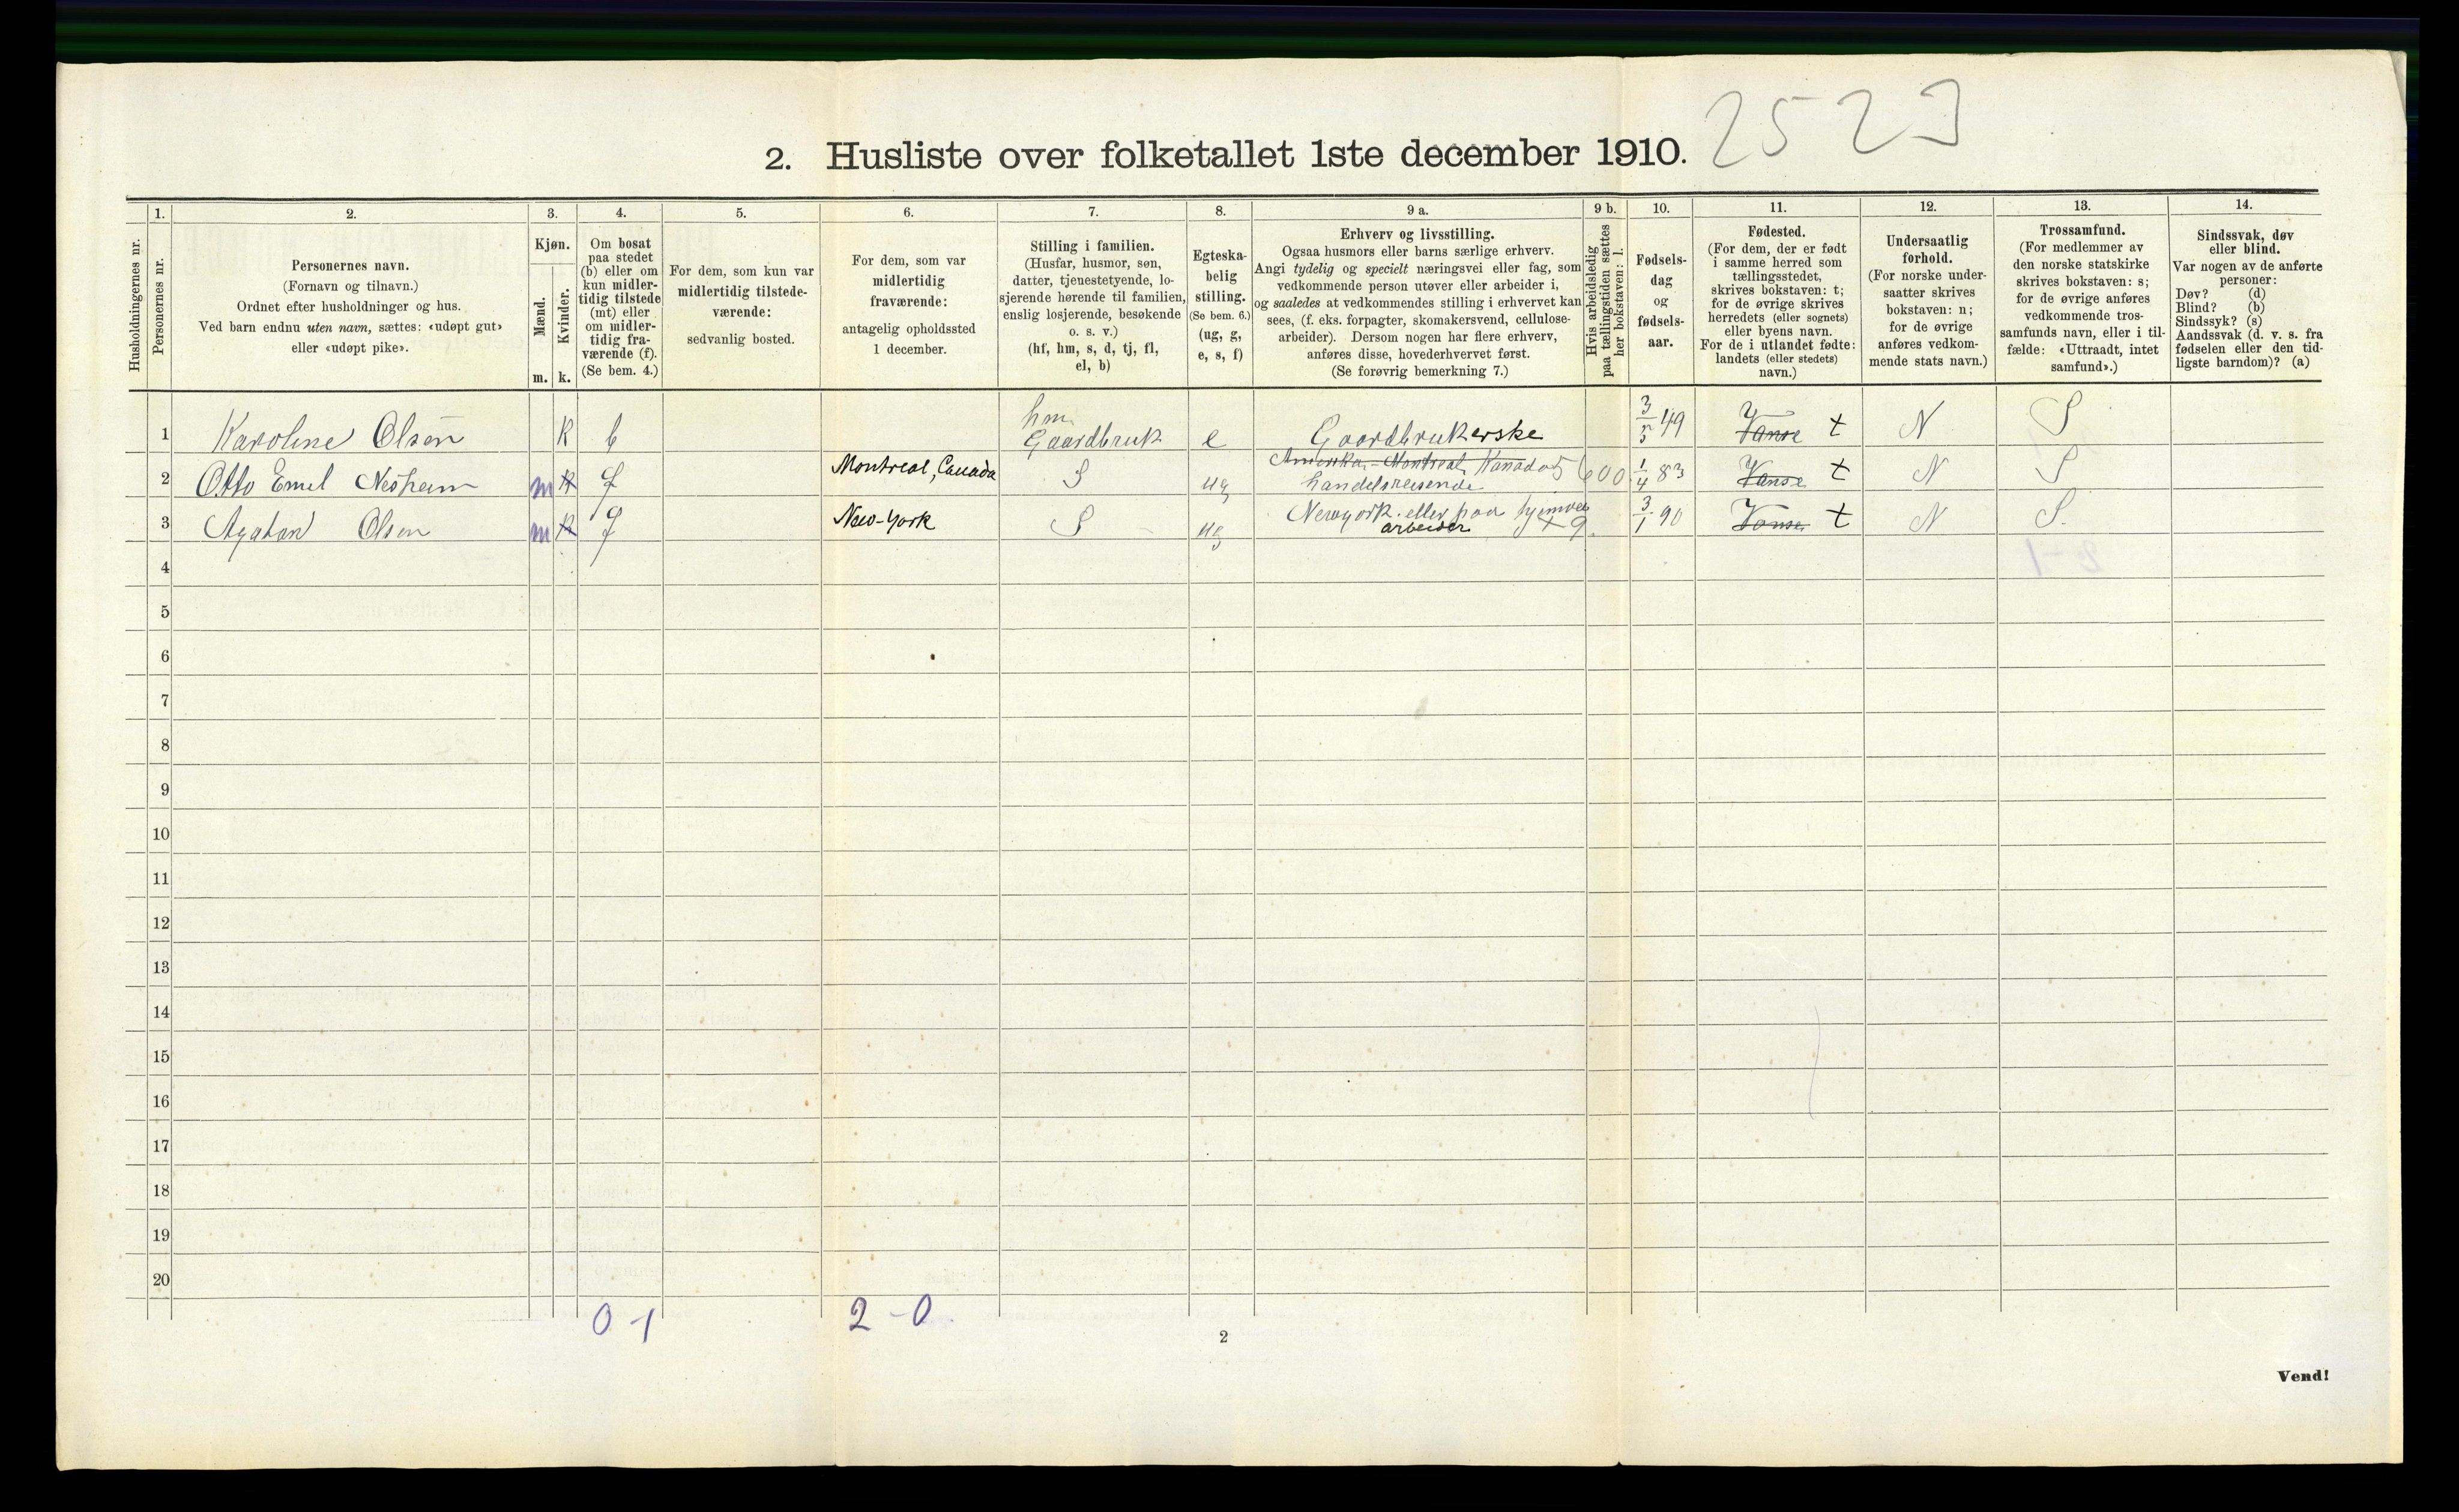 2523
2. Husliste over folketallet 1ste december 1910.
Husholdningernes nr.
1.
Personernes nr.
2.
Personernes navn.
(Fornavn og tilnavn.)
Ordnet efter husholdninger og hus.
Ved barn endnu uten navn, sættes: «udøpt gut»
eller «udøpt pike».
3.
Kjøn.
Mænd.
Kvinder.
m. k.
4.
Om bosat
paa stedet
(b) eller om
kun midler-
tidig tilstede
(mt) eller
om midler-
tidig fra-
værende (f).
(Se bem. 4.)
5.
For dem, som kun var
midlertidig tilstede-
værende:
sedvanlig bosted.
6.
For dem, som var
midlertidig
fraværende:
antagelig opholdssted
1 december.
7.
Stilling i familien.
(Husfar, husmor, søn,
datter, tjenestetyende, lo-
sjerende hørende til familien,
enslig losjerende, besøkende
o. s. v.)
(hf, hm, s, d, tj, fl,
el, b)
8.
Egteska-
belig
stilling.
(Se bem. 6.)
(ug, g,
e, s, f)
9 a.
Erhverv og livsstilling.
Ogsaa husmors eller barns særlige erhverv.
Angi tydelig og specielt næringsvei eller fag, som
vedkommende person utøver eller arbeider i,
og saaledes at vedkommendes stilling i erhvervet kan
sees, (f. eks. forpagter, skomakersvend, cellulose-
arbeider). Dersom nogen har flere erhverv,
anføres disse, hovederhvervet først.
(Se forøvrig bemerkning 7.)
9 b.
Hvis arbeidsledig
paa tællingstiden sættes
her bokstaven: l.
10.
Fødsels-
dag
og
fødsels-
aar.
11.
Fødested.
(For dem, der er født
i samme herred som
tællingsstedet,
skrives bokstaven: t;
for de øvrige skrives
herredets (eller sognets)
eller byens navn.
For de i utlandet fødte:
landets (eller stedets)
navn.)
12.
Undersaatlig
forhold.
(For norske under-
saatter skrives
bokstaven: n;
for de øvrige
anføres vedkom-
mende stats navn.)
13.
Trossamfund.
(For medlemmer av
den norske statskirke
skrives bokstaven: s;
for de øvrige anføres
vedkommende tros-
samfunds navn, eller i til-
fælde: «Uttraadt, intet
samfund».)
14.
Sindssvak, døv
eller blind.
Var nogen av de anførte
personer:
Døv? (d)
Blind? (b)
Sindssyk? (s)
Aandssvak (d. v. s. fra
fødselen eller den tid-
ligste barndom)? (a)
hm
1 Karoline Olsen K b Gaardbruk e Gaardbrukerske 3/5 49 Vanse t N S
Montreal, Canada Amerika - Montreal, Kanada 5600
2 Otto Emel Nesheim m K f S ug handelsreisende 1/4 83 Vanse t N S
New-York Newyork eller paa hjemvei
3 Agaton Olsen m K f S ug arbeider 3/1 90 Vanse t N S.
4
5
6
7
8
9
10
11
12
13
14
15
16
17
18
19
20
0-1 2-0
2
Vend!